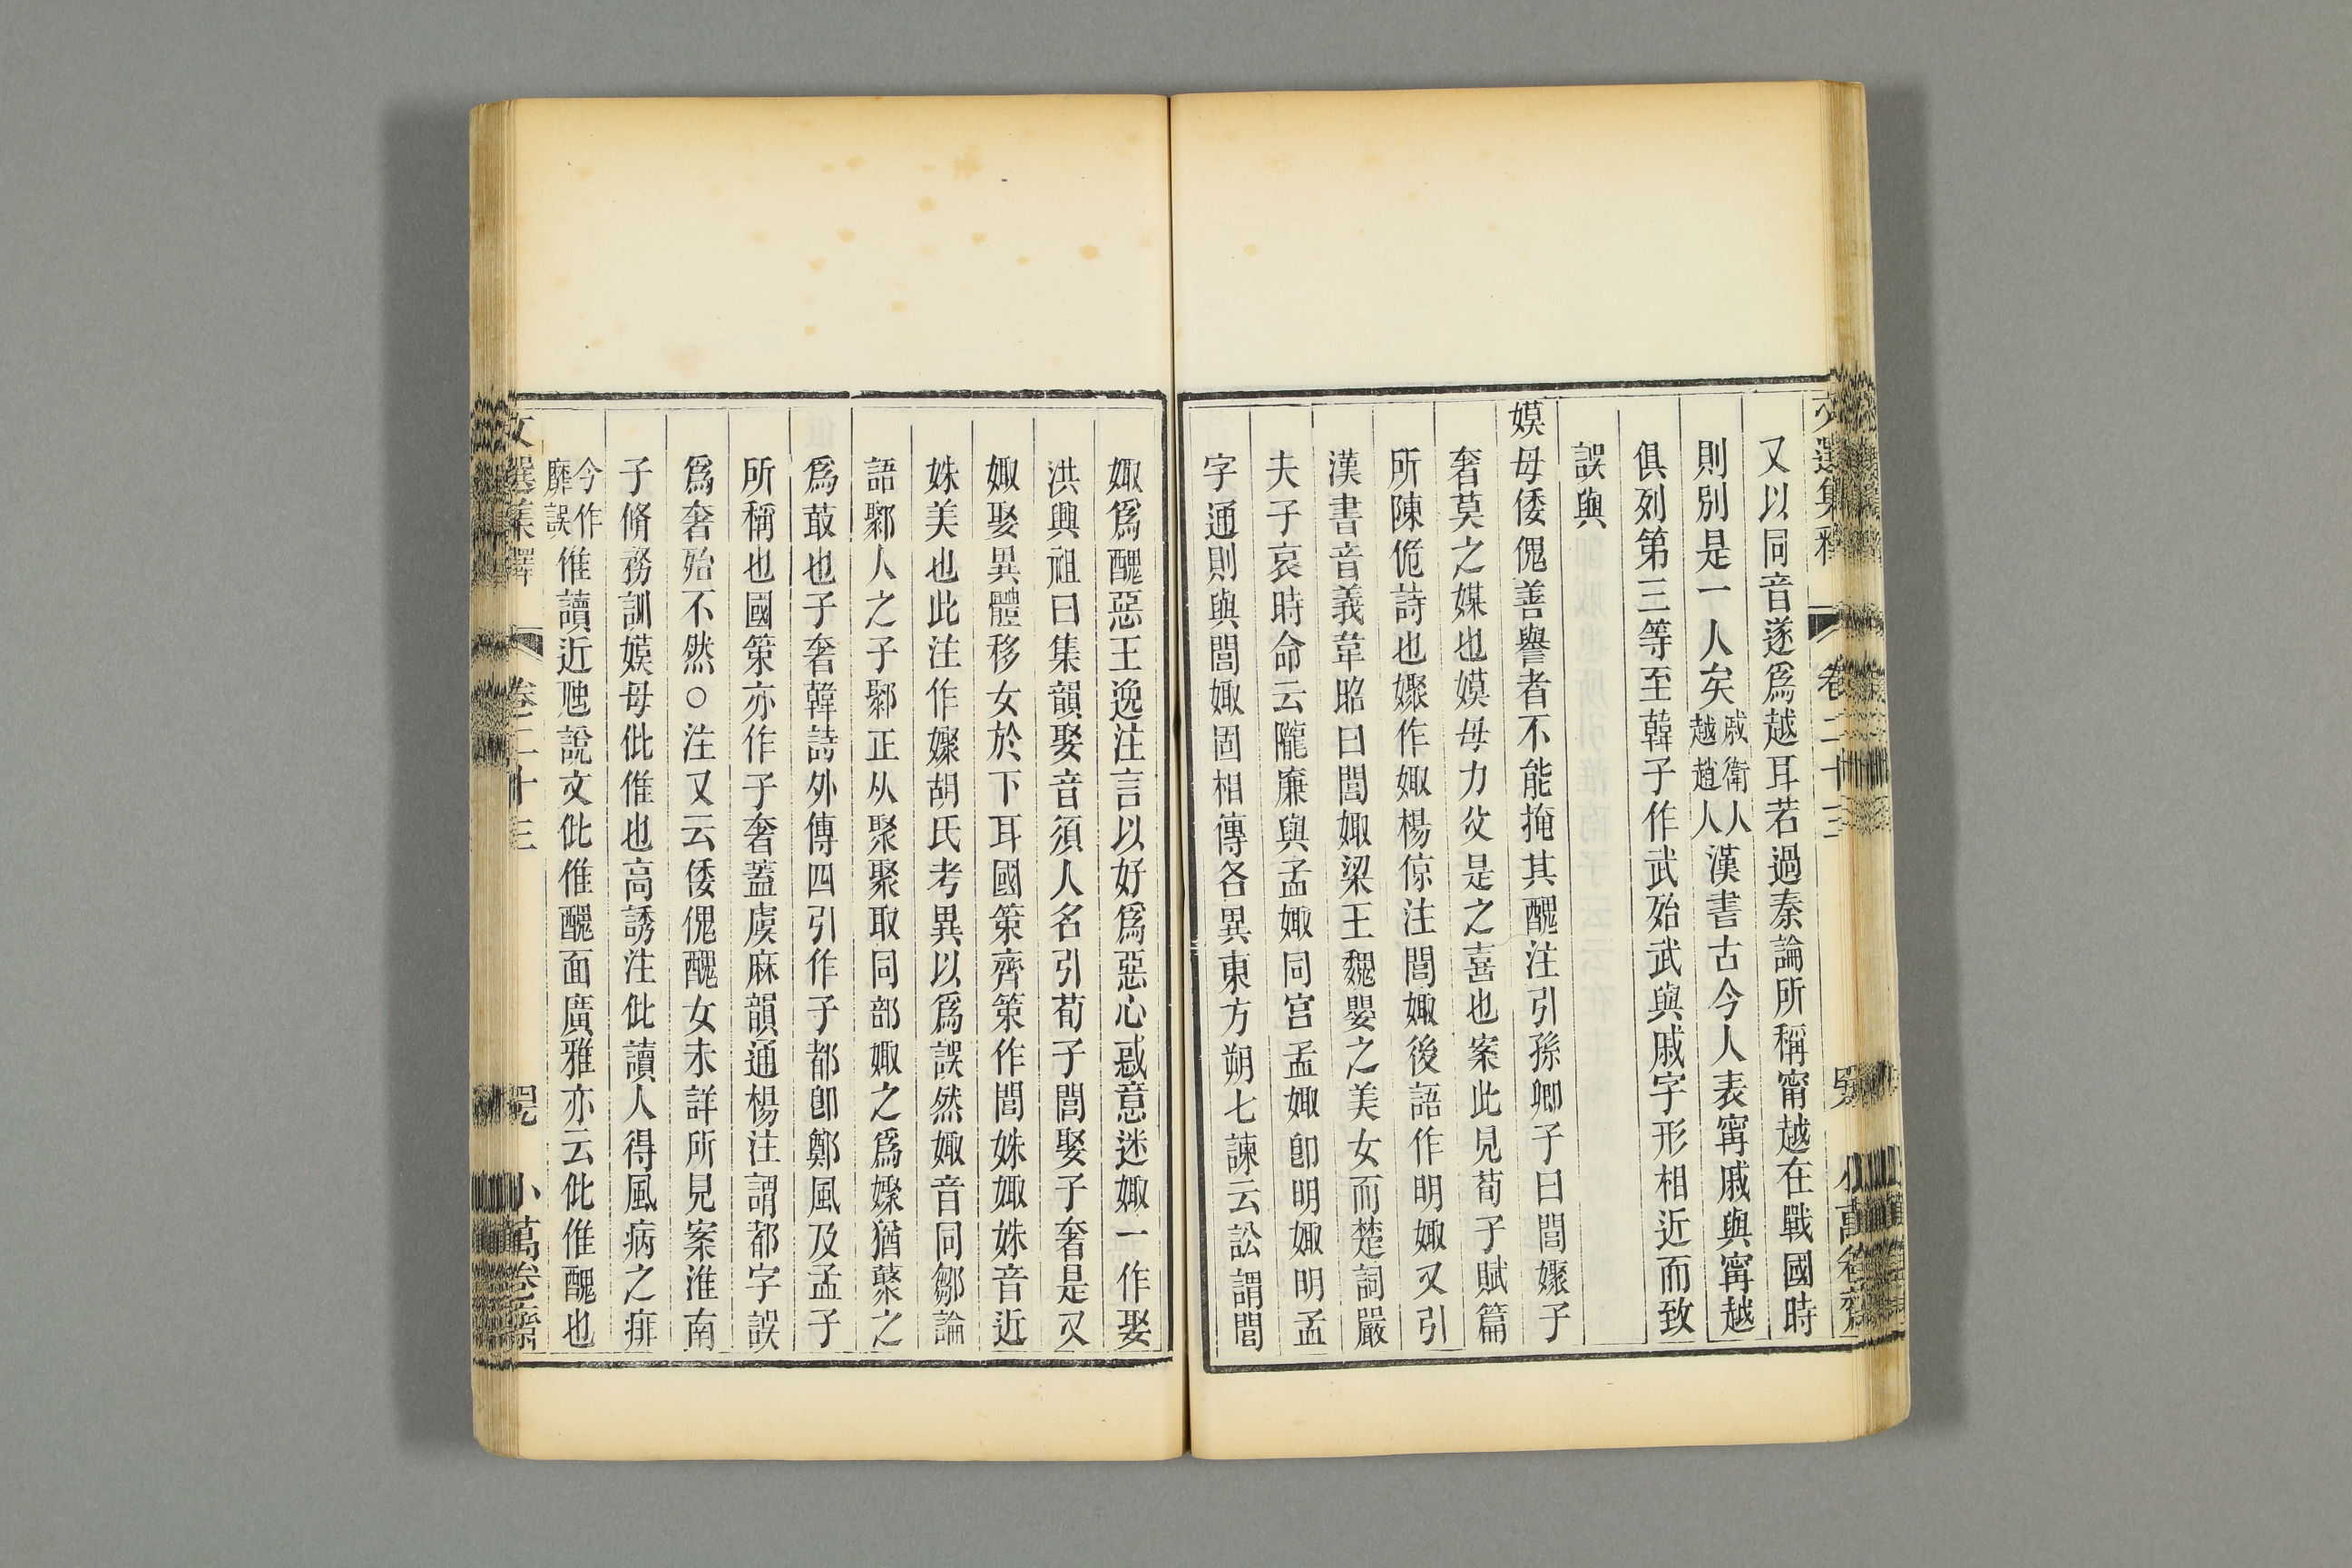 又以同音遂爲越耳若過秦論所稱甯越在戰國時
則別是一人矣戚衛人越趙人漢書古今人表甯戚與甯越
俱列第三等至韓子作武殆武與戚字形相近而致
誤與
嫫母倭傀善譽者不能掩其醜注引孫卿子曰閭娵子
奢莫之媒也嫫母力父是之喜也案此見荀子賦篇
所陳佹詩也嫏作娵楊倞注閭娵後語作明娵又引
漢書音義韋昭曰閭娵梁王魏嬰之美女而楚詞嚴
夫子哀時命云隴廉與孟娵同宮孟娵卽明娵明孟
字通則與閭娵固相傳各異東方朔七諫云訟謂閭
娵爲醜惡王逸注言以好爲惡心惑意迷娵一作娶
洪興祖曰集韻娶音須人名引荀子閭娶子奢是又
娵娶異體移女於下耳國策齊策作閭姝娵姝音近
姝美也此注作嬫胡氏考異以爲誤然娵音同鄒論
語鄹人之子鄹正从聚聚取同部娵之爲嬫猶藂之
爲菆也子奢韓詩外傳四引作子都卽鄭風及孟子
所稱也國策亦作子奢蓋虞麻韻通楊注謂都字誤
爲奢殆不然○注又云倭傀醜女未詳所見案淮南
子脩務訓嫫母仳倠也高誘注仳讀人得風病之痱
今作靡誤倠讀近虺說文仳倠醜面廣雅亦云仳倠醜也
文選集釋
卷二十三
小萬卷齋